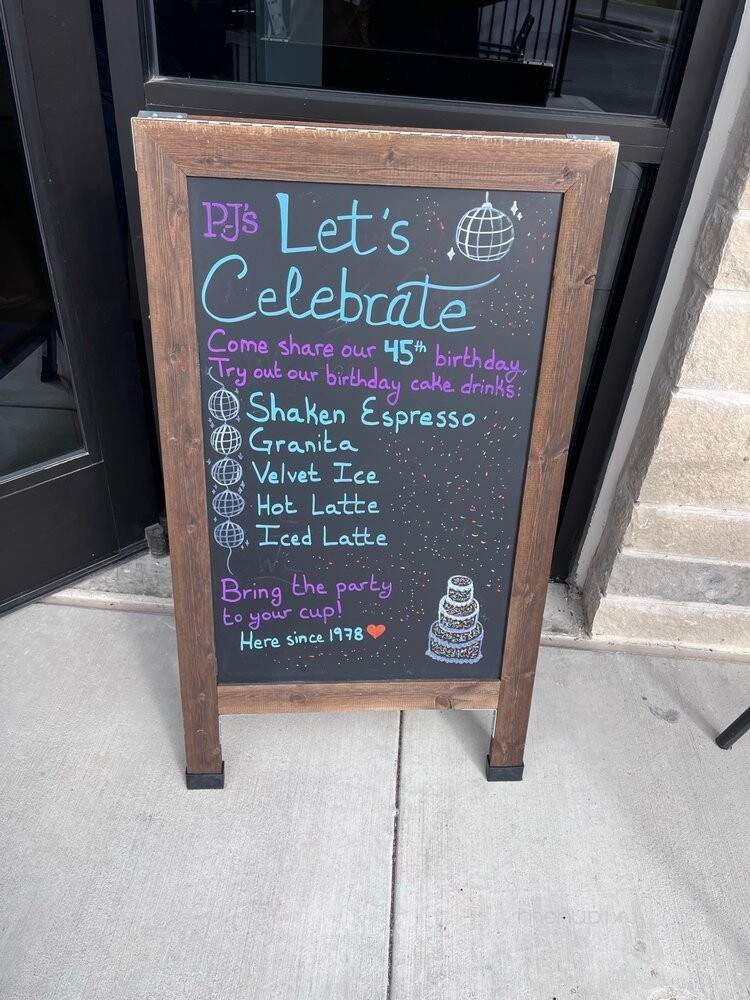 PJ's Let's
Celebrate
Come share our 45th birthday,
Try out our birthday cake drinks:
Shaken Espresso
Granita
Velvet Ice
Hot Latte
Iced Latte
Bring the party
to your cup!
Here since 1978